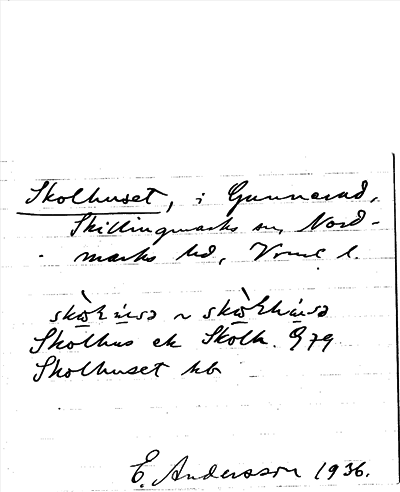 Skolhuset, i Gunnerud,
Skillingmarks sn, Nord-
marks hd, Vrml l.
Skolhus ek Skolh. G 79
Skolhuset hb
E. Andersson 1936.